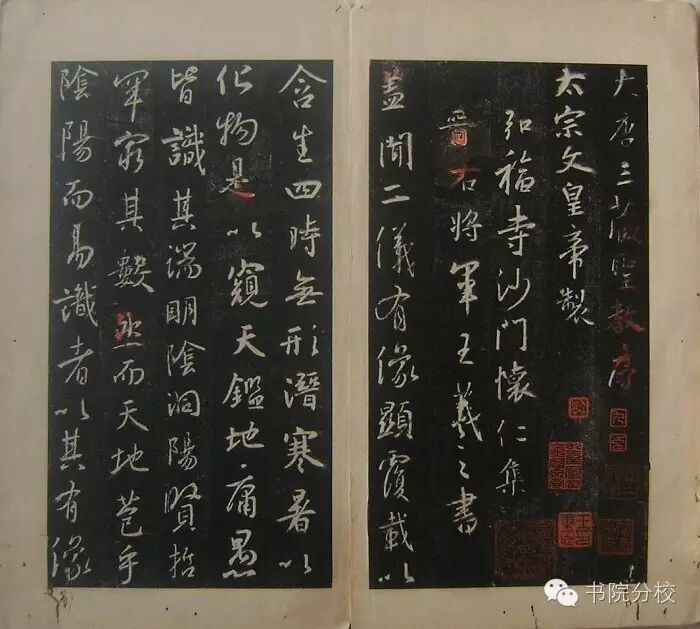 大唐三藏聖教序
太宗文皇帝製
弘福寺沙門懷仁集
晉右將軍王羲之書
蓋聞二儀有像顯覆載以
含生四時無形潛寒暑以
化物是以窺天鑑地庸愚
皆識其端明陰洞陽賢哲
罕窮其數然而天地苞乎
陰陽而易識者以其有像
书院分校